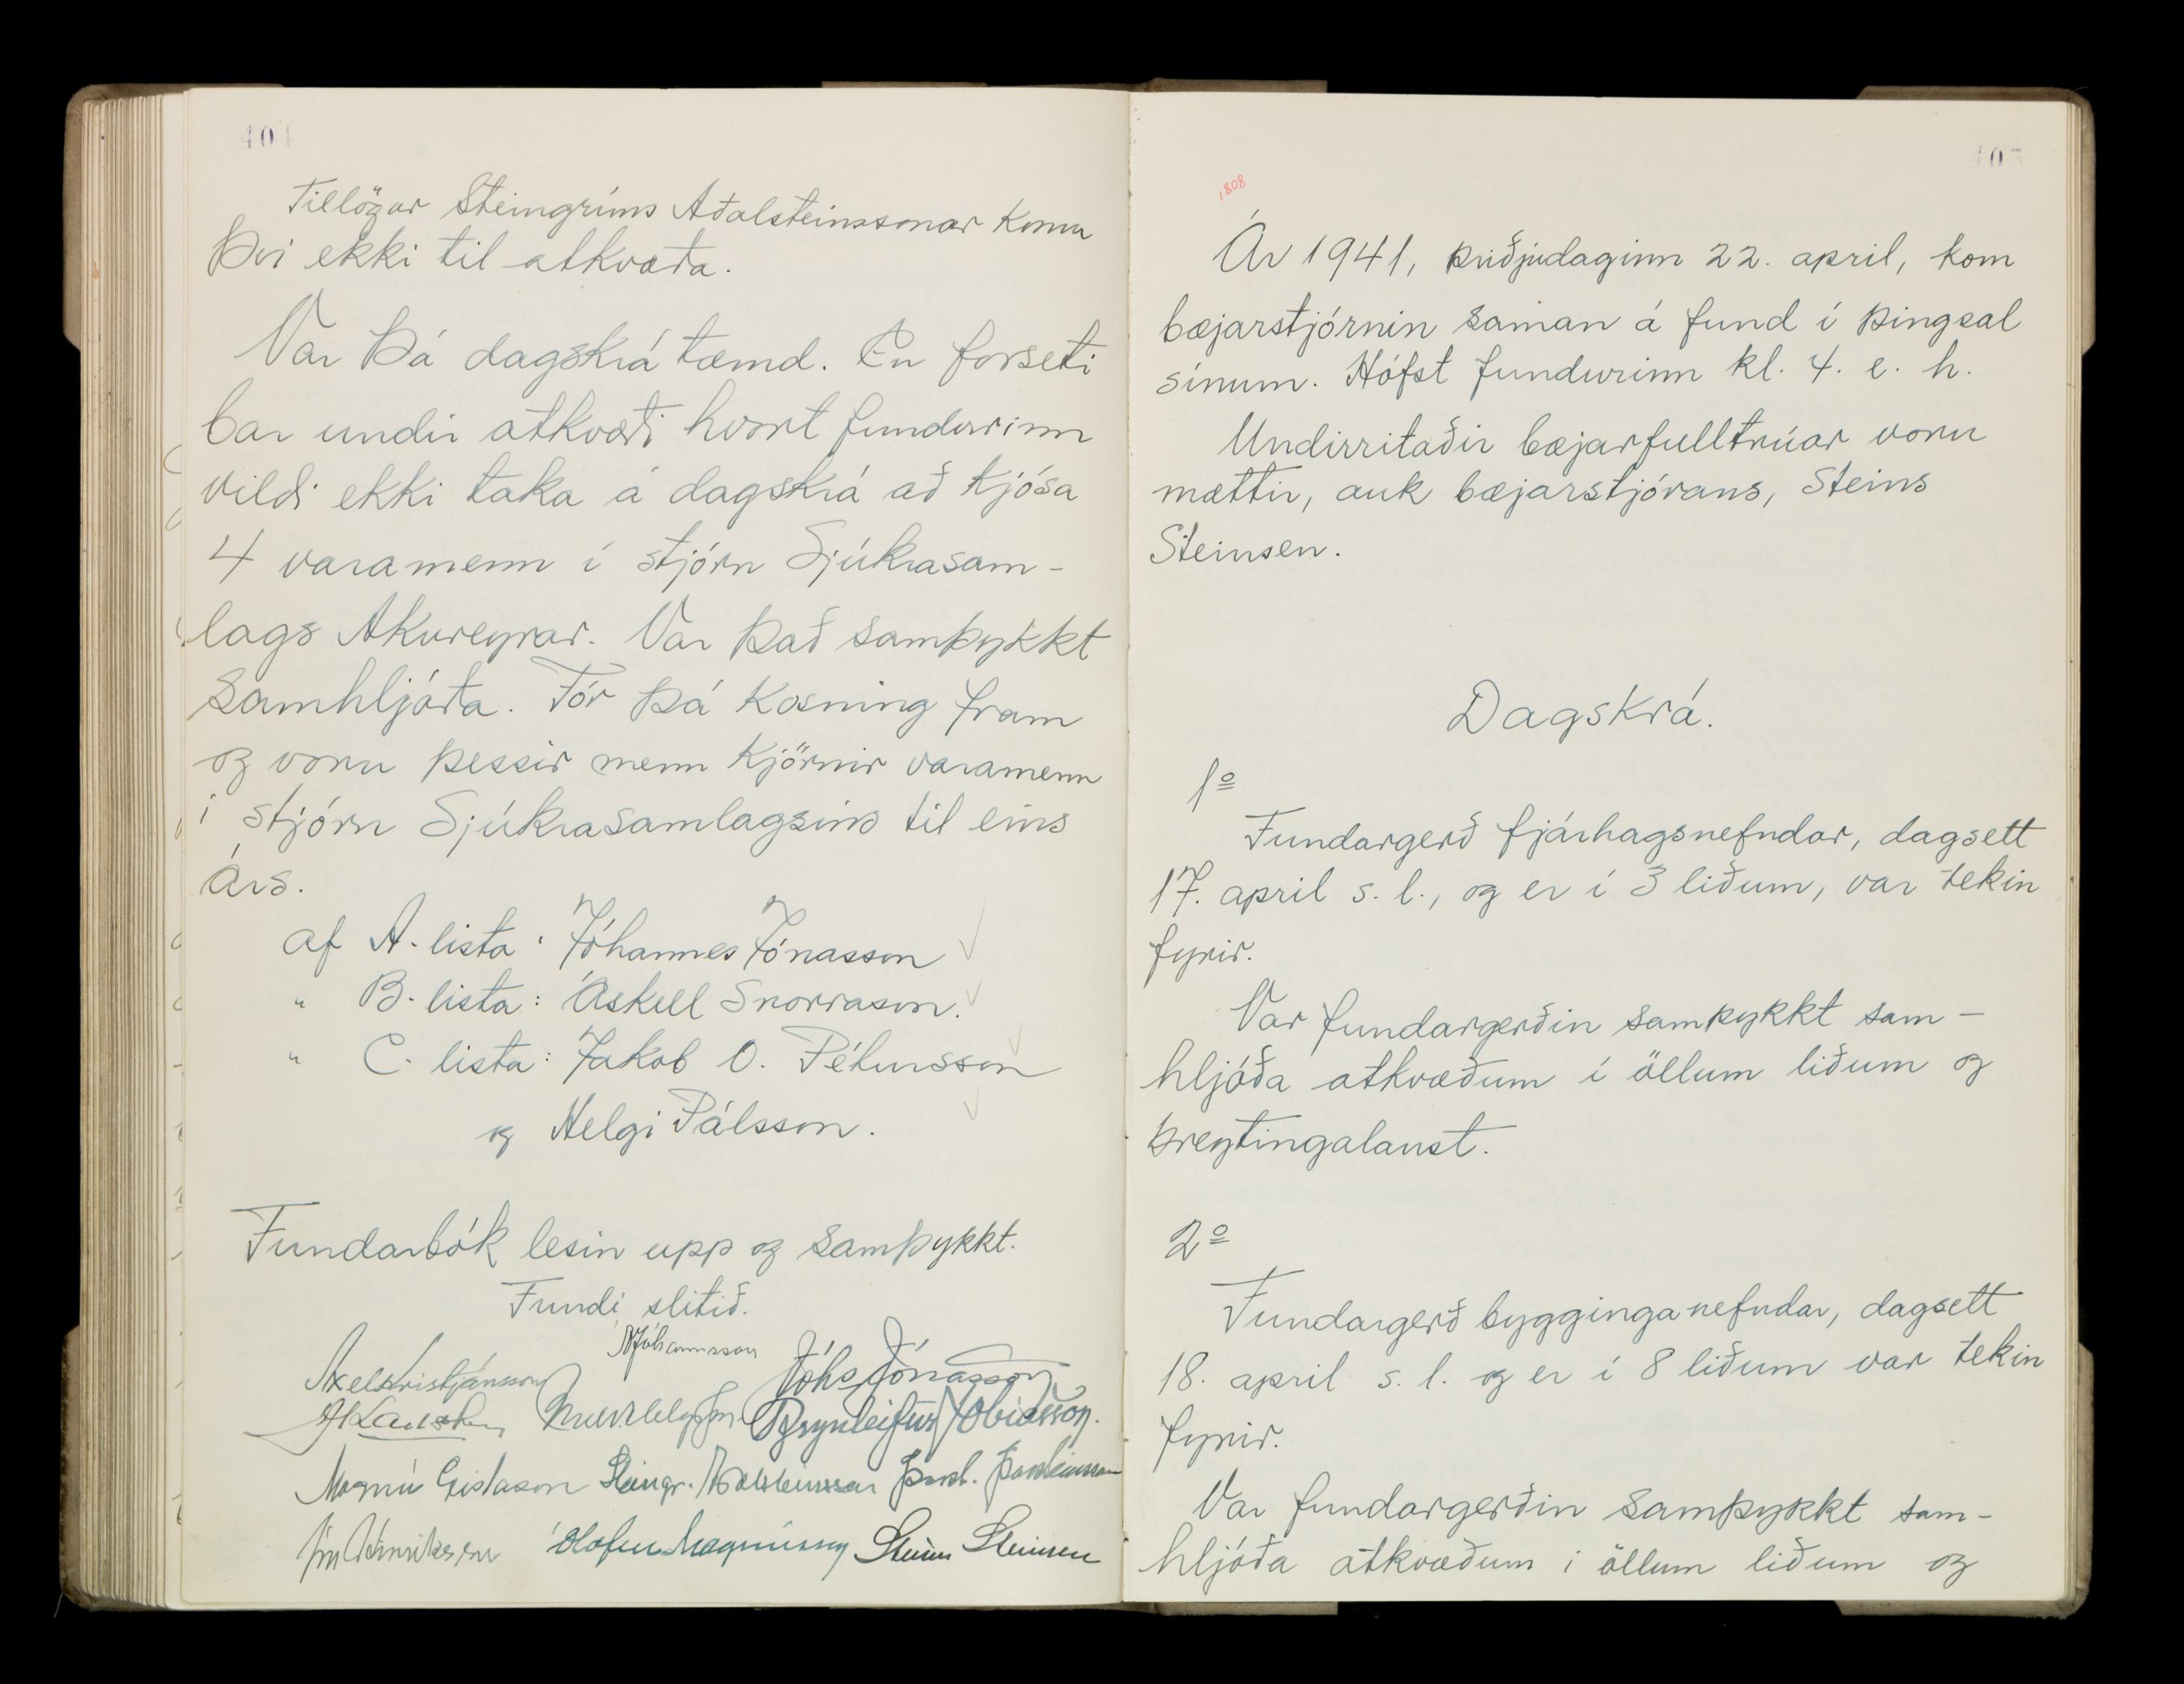 404
Tillögur Steingríms Aðalsteinssonar komu
því ekki til atkvæða.
Var þá dagskrá tæmd. En forseti
bar undir atkvæði hvort fundurinn
vildi ekki taka á dagskrá að kjósa
4 varamenn í stjórn Sjúkrasam-
lags Akureyrar. Var það samþykkt
samhljóða. Fór þá kosning fram
og voru þessir menn kjörnir varamenn
í stjórn Sjúkrasamlagsins til eins
árs.
af A-lista: Jóhannes Jónasson
" B-lista: Áskell Snorrason.
" C-lista: Jakob Ó. Pétursson
og Helgi Pálsson.
Fundarbók lesin upp og samþykkt.
Fundi slitið.
Jóhannsson
Axel Kristjánsson Jóhs Jónasson
Brynleifur Tobiasson.
Magnús Gíslason Steingr. Aðalsteinsson Þorst. Þorsteinsson
Jón Hinriksson Ólafur Magnússon Steinn Steinsen
405
1808
Ár 1941, þriðjudaginn 22. april, kom
bæjarstjórnin saman á fund í þingsal
sínum. Hófst fundurinn kl. 4. e. h.
Undirritaðir bæjarfulltrúar voru
mættir, auk bæjarstjórans, Steins
Steinsen.
Dagskrá.
1º
Fundargerð fjárhagsnefndar, dagsett
17. april s. l., og er í 3 liðum, var tekin
fyrir.
Var fundargerðin samþykkt sam-
hljóða atkvæðum í öllum liðum og
breytingalaust.
2º
Fundargerð bygginganefndar, dagsett
18. april s. l. og er í 8 liðum var tekin
fyrir.
Var fundargerðin samþykkt sam-
hljóða atkvæðum í öllum liðum og